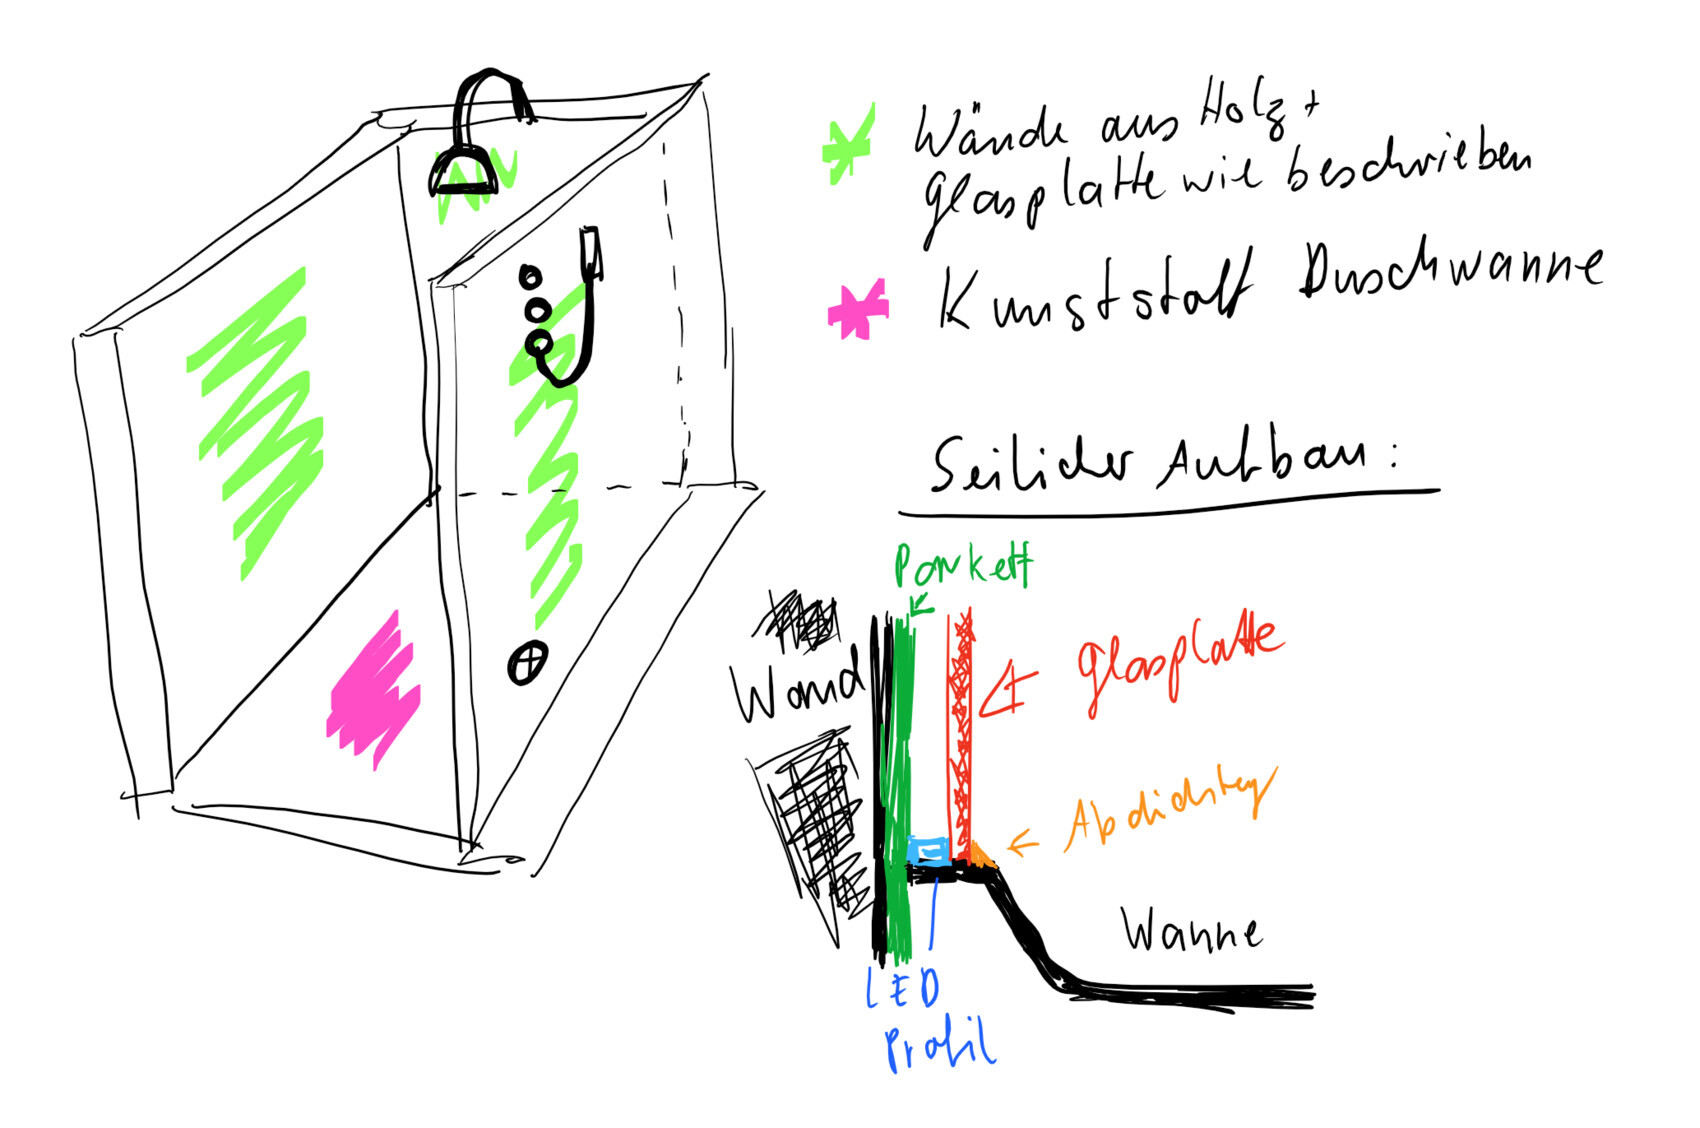 Wände aus Holz +
Glasplatte wie beschrieben
Kunststoff Duschwanne
Seilicher Aufbau:
Parkett
Wand
Glasplatte
Abdichtung
Wanne
LED
Profil